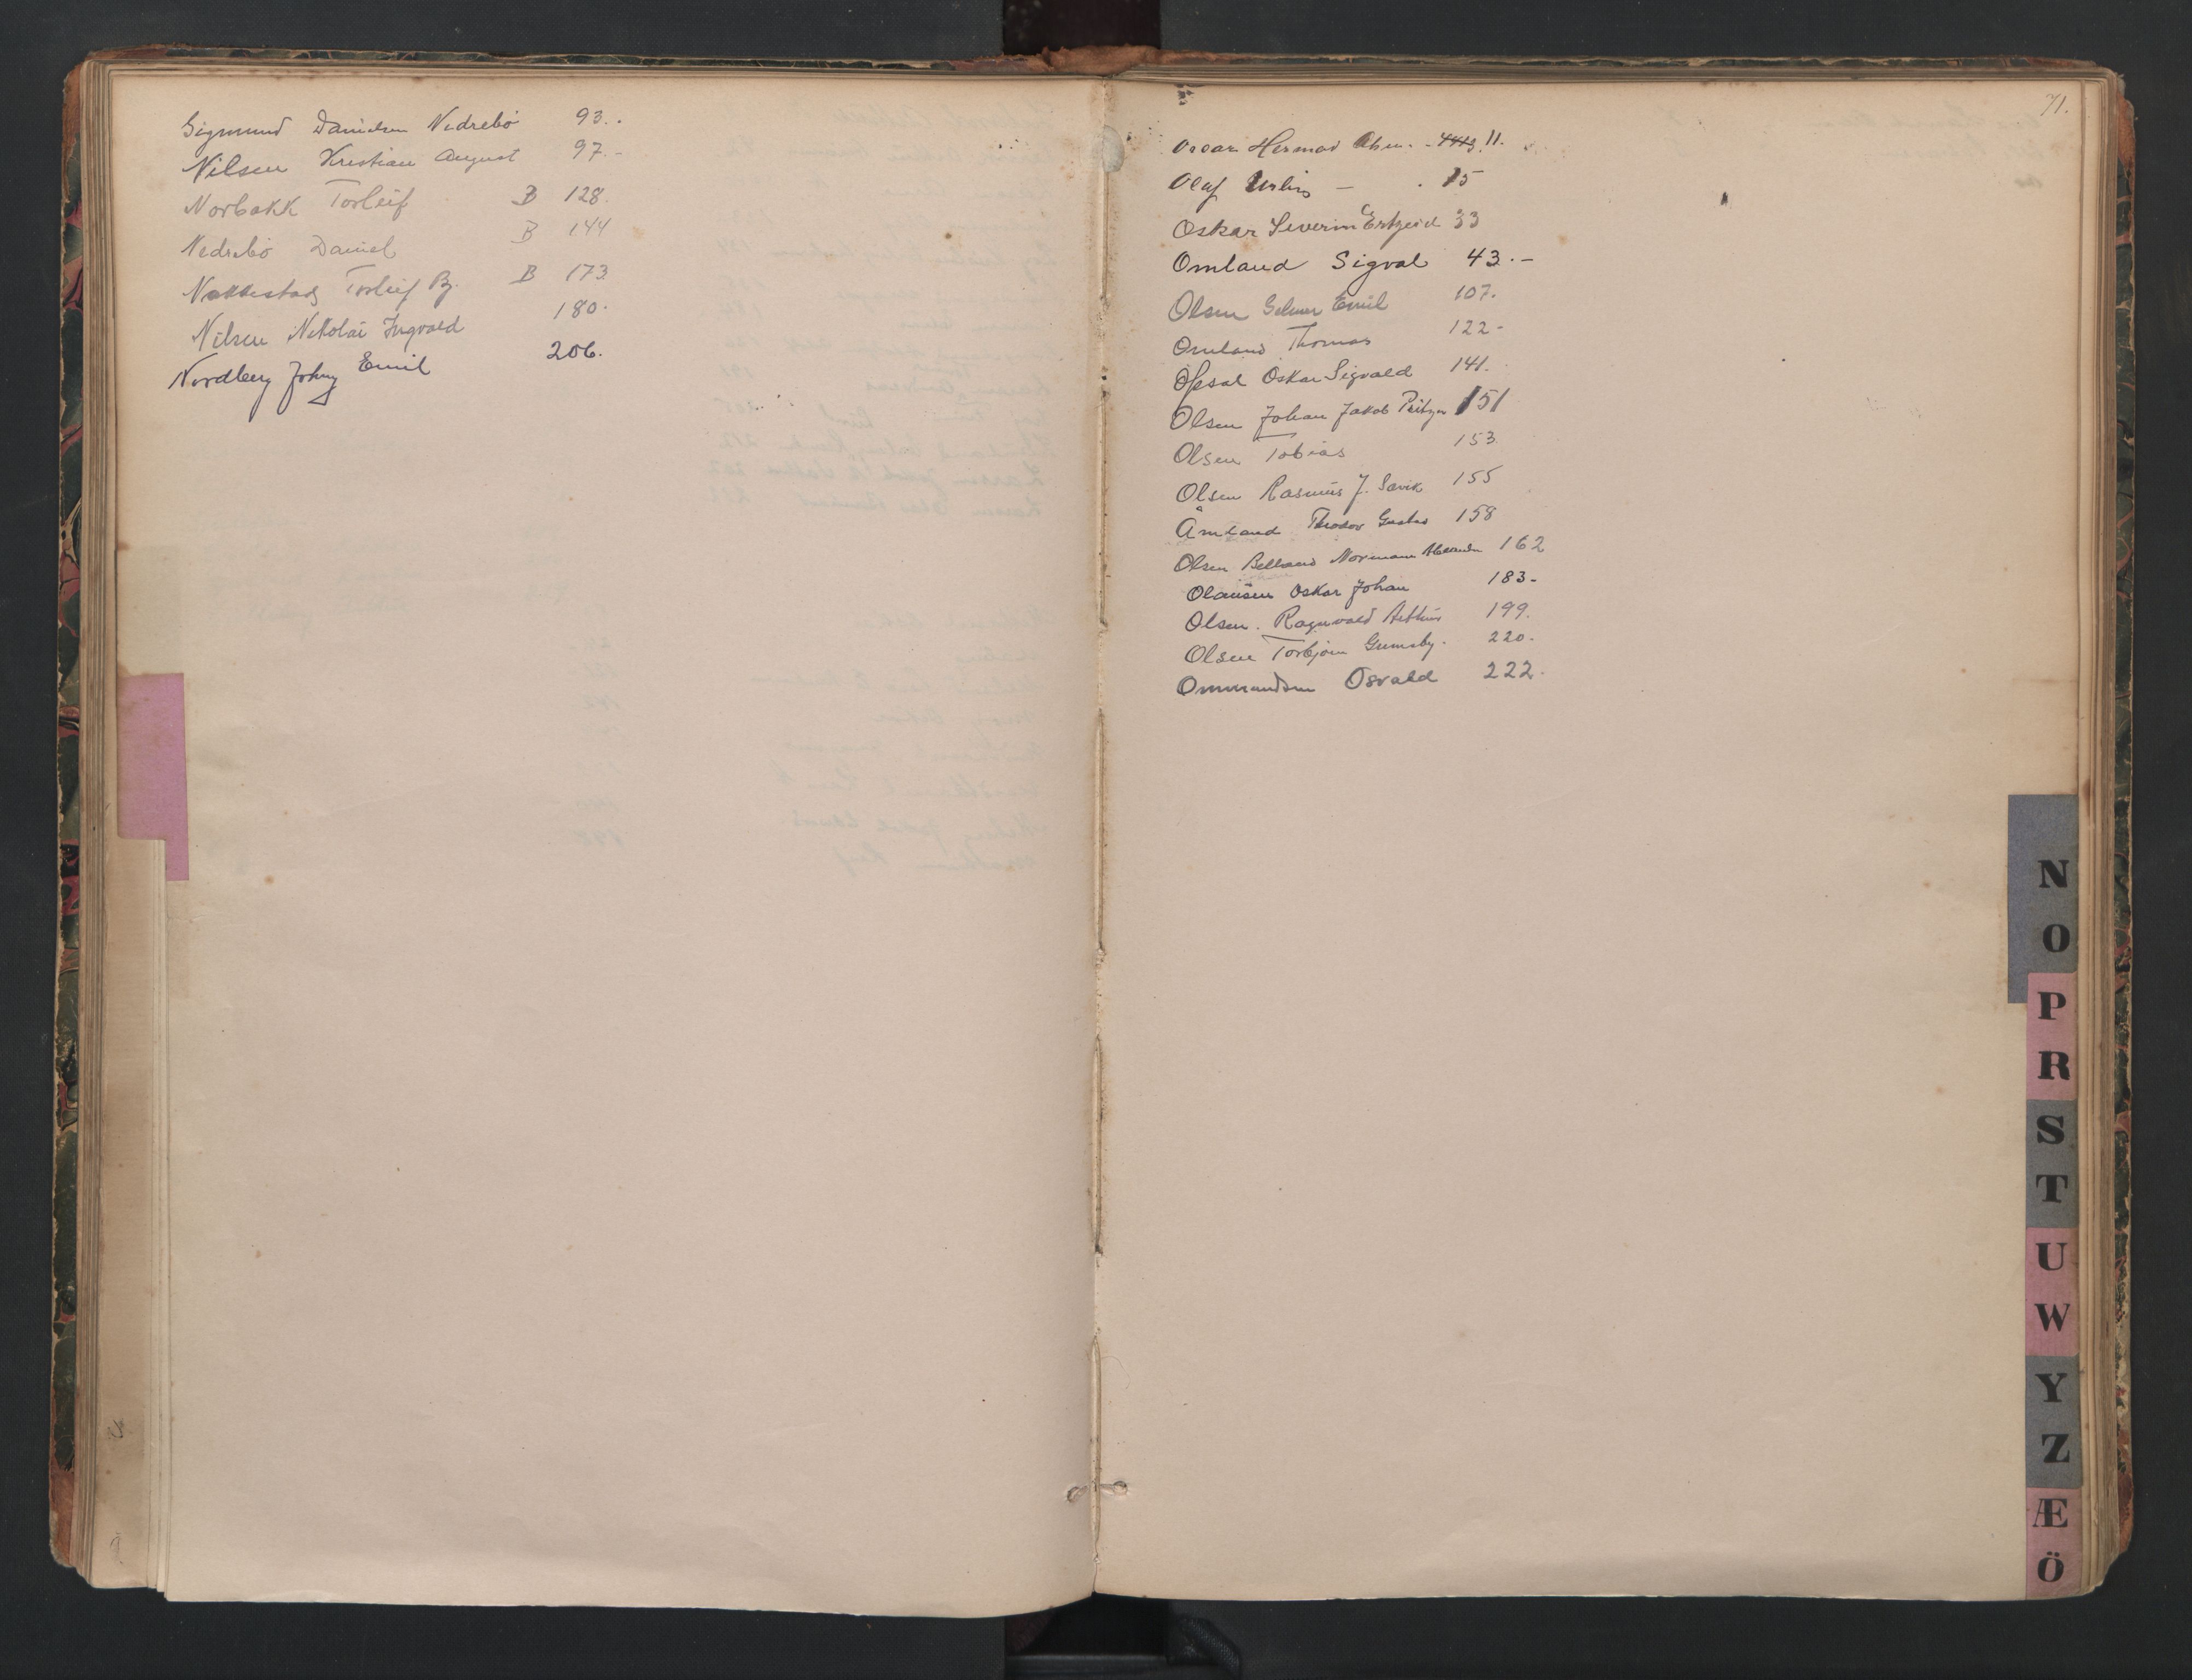 Sigmund Danielsen Nedrebö 93.
Nilsen Kristian August 97.-
Norbakk Torleif B 128.
Nedrebö Daniel B 144
Torleif Bj. B 173
Nilsen Nikolai Ingvald 180.
Nordberg Johny Emil 206.
71.
Oscar Hermod 11.
Olaf 15
Oskar Severin Ertzeid 33
Omland Sigval 43.-
Olsen Emil 107.
Omland Thomas 122-
Opsal Oskar Sigvald 141.
Olsen Johan Jakob 151
Olsen Tobias 153
Olsen Rasmus J. Savik 155
Åmland Theodor 158
Olsen Normann 162
Olausen Oskar Johan 183-
Olsen. Ragnvald 199.
Olsen Torbjörn 220.
Ommundsen Osvald 222.
N
O
P
R
S
T
U
W
Y
Z
Æ
Ö